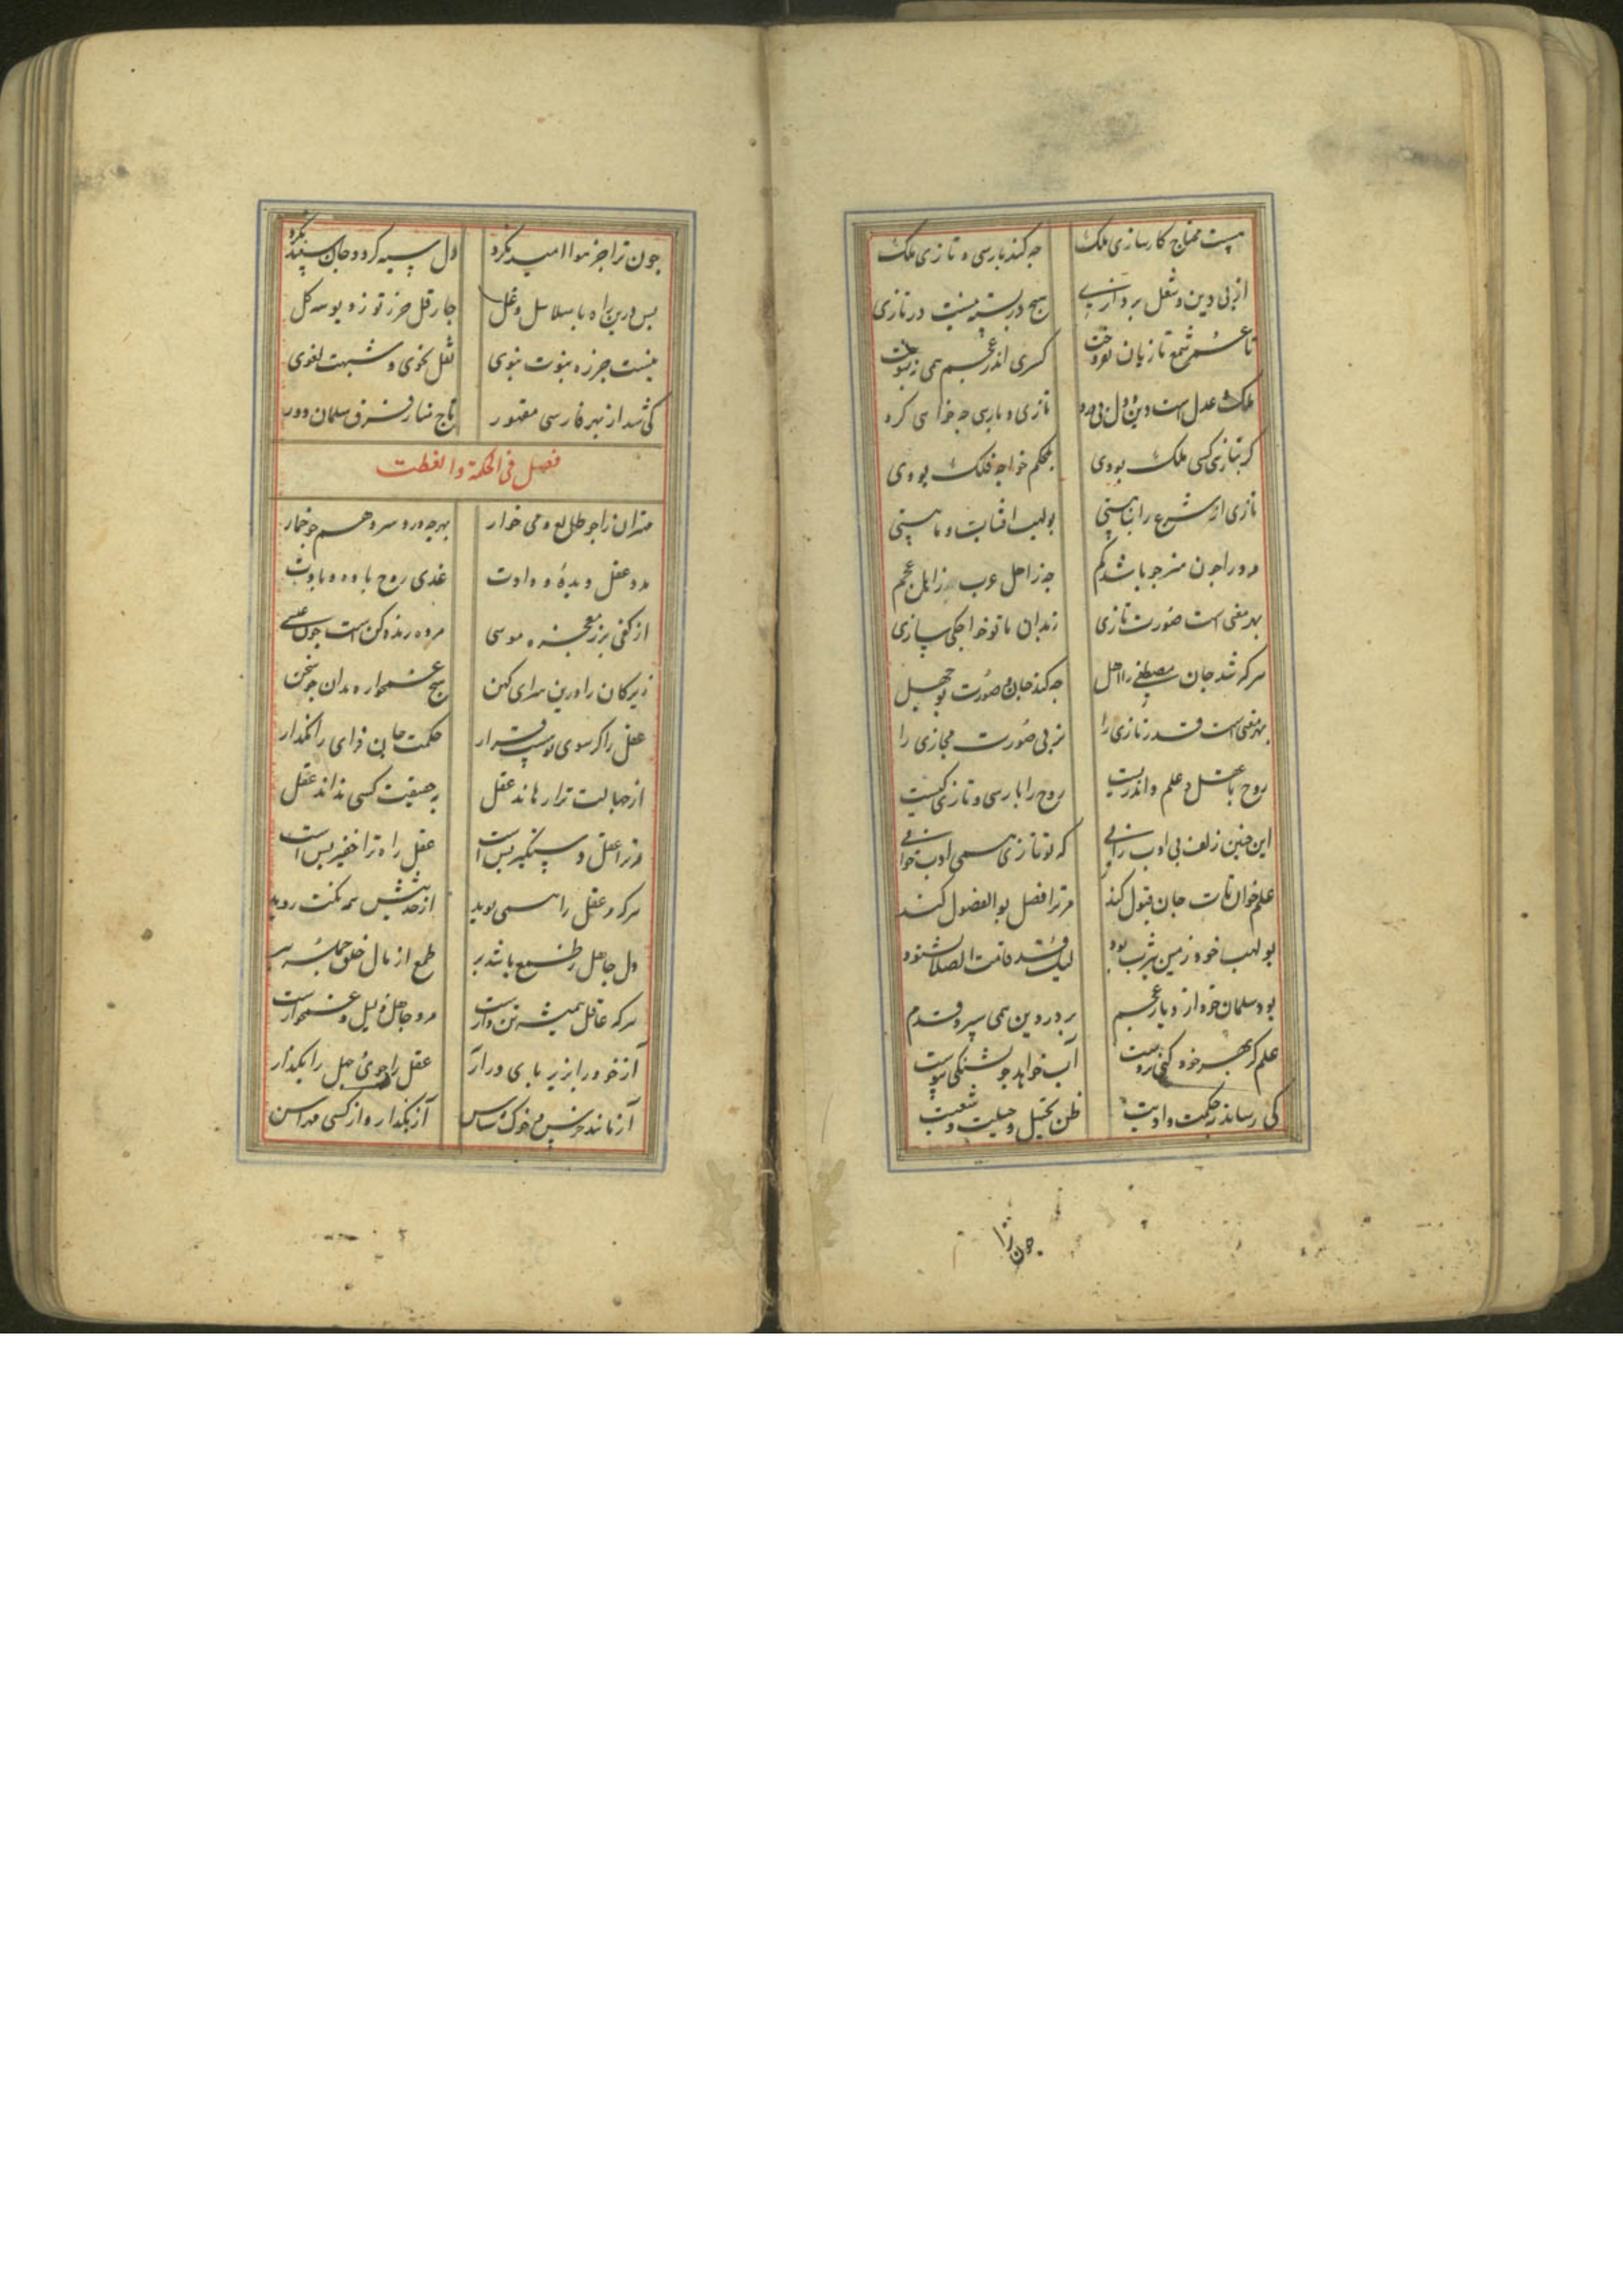 نیست محتاج کارسازی ملک چه کند پارسی و تازی ملک
از پی دین و شغل پردازی هیچ در بسته نیست در تازی
تا عمر شمع تازیان بفروخت کسری اندر عجم همی
ملک عدل است و دین دل پر درد تازی و پارسی چه خواهی کرد
گر بتازی کسی ملک بودی بوالحکم خواجه فلک بودی
تازی ار شرع را پناهستی بولهب افتاب و ماهستی
مرد را چون هنر نباشد کم چه ز اهل عرب چه ز اهل عجم
بهر معنی است صورت تازی نه بدان تا تو خواجگی سازی
هرکه شد جان مصطفی را اهل چه کند جان و صورت بوجهل
بهر معنی است قدر تازی را نز پی صورت مجازی را
روح با عقل و علم داند زیست روح را پارسی و تازی کیست
این چنین زلف بی ادب زانی که تو تازی همی ادب خوانی
علم خوان تات جان قبول کند مر ترا فضل بوالفضول کند
بولهب خود زمین یثرب بود لیک قد قامت الصلا نشنود
بود سلمان خود از دیار عجم بر در دین همی سپرد قدم
علم کز بهر خود کنی آب خواهد چو تشنگی
کی رساند ز حکمت و ادبت ظن تخییل و حیلت و شعبت
چون ترا
چون ترا جز هوا امید نکرد دل سیه کرد و جان سپید نکرد
پس درین راه با سلاسل و غل چار قل حرز تو زده بوسه کل
نیست جز زده نبوت نبوی ثقل نحوی و شبهت لغوی
کی شد از بهر فارسی مقهور تاج شرف سلمان دور
فصل فی الحکمة والعظت
مهتران را چو طالع و می خوار بهر چه درد سر دهم چو خمار
مرد عقل دیده و دادت غذی روح با وده و بادت
از کفی برز معجزه موسی مرده زنده کن است چون عیسی
زیرکان را درین سرای کهن هیچ غمخواره مدان چو سخن
عقل را گر سوی تو هست قرار حکمت جان فزای را مگذار
از جهالت ترا رهاند عقل به حقیقت کسی نداند عقل
مر ترا عقل دستگیر بس است عقل راه ترا خفیر بس است
هرکه در عقل را همی پوید از حدیثش همه نکت روید
دل جاهل ز طمع باشد پر طمع از مال خلق جمله ببر
هرکه عاقل همیشه تن دار است مرد جاهل ذلیل و غمخوار است
آز خود را بزیر پای در آر عقل را جوی و جهل را بگذار
آز ماننده خوک و خرس شناس آز بگذار و از کسی مهراس